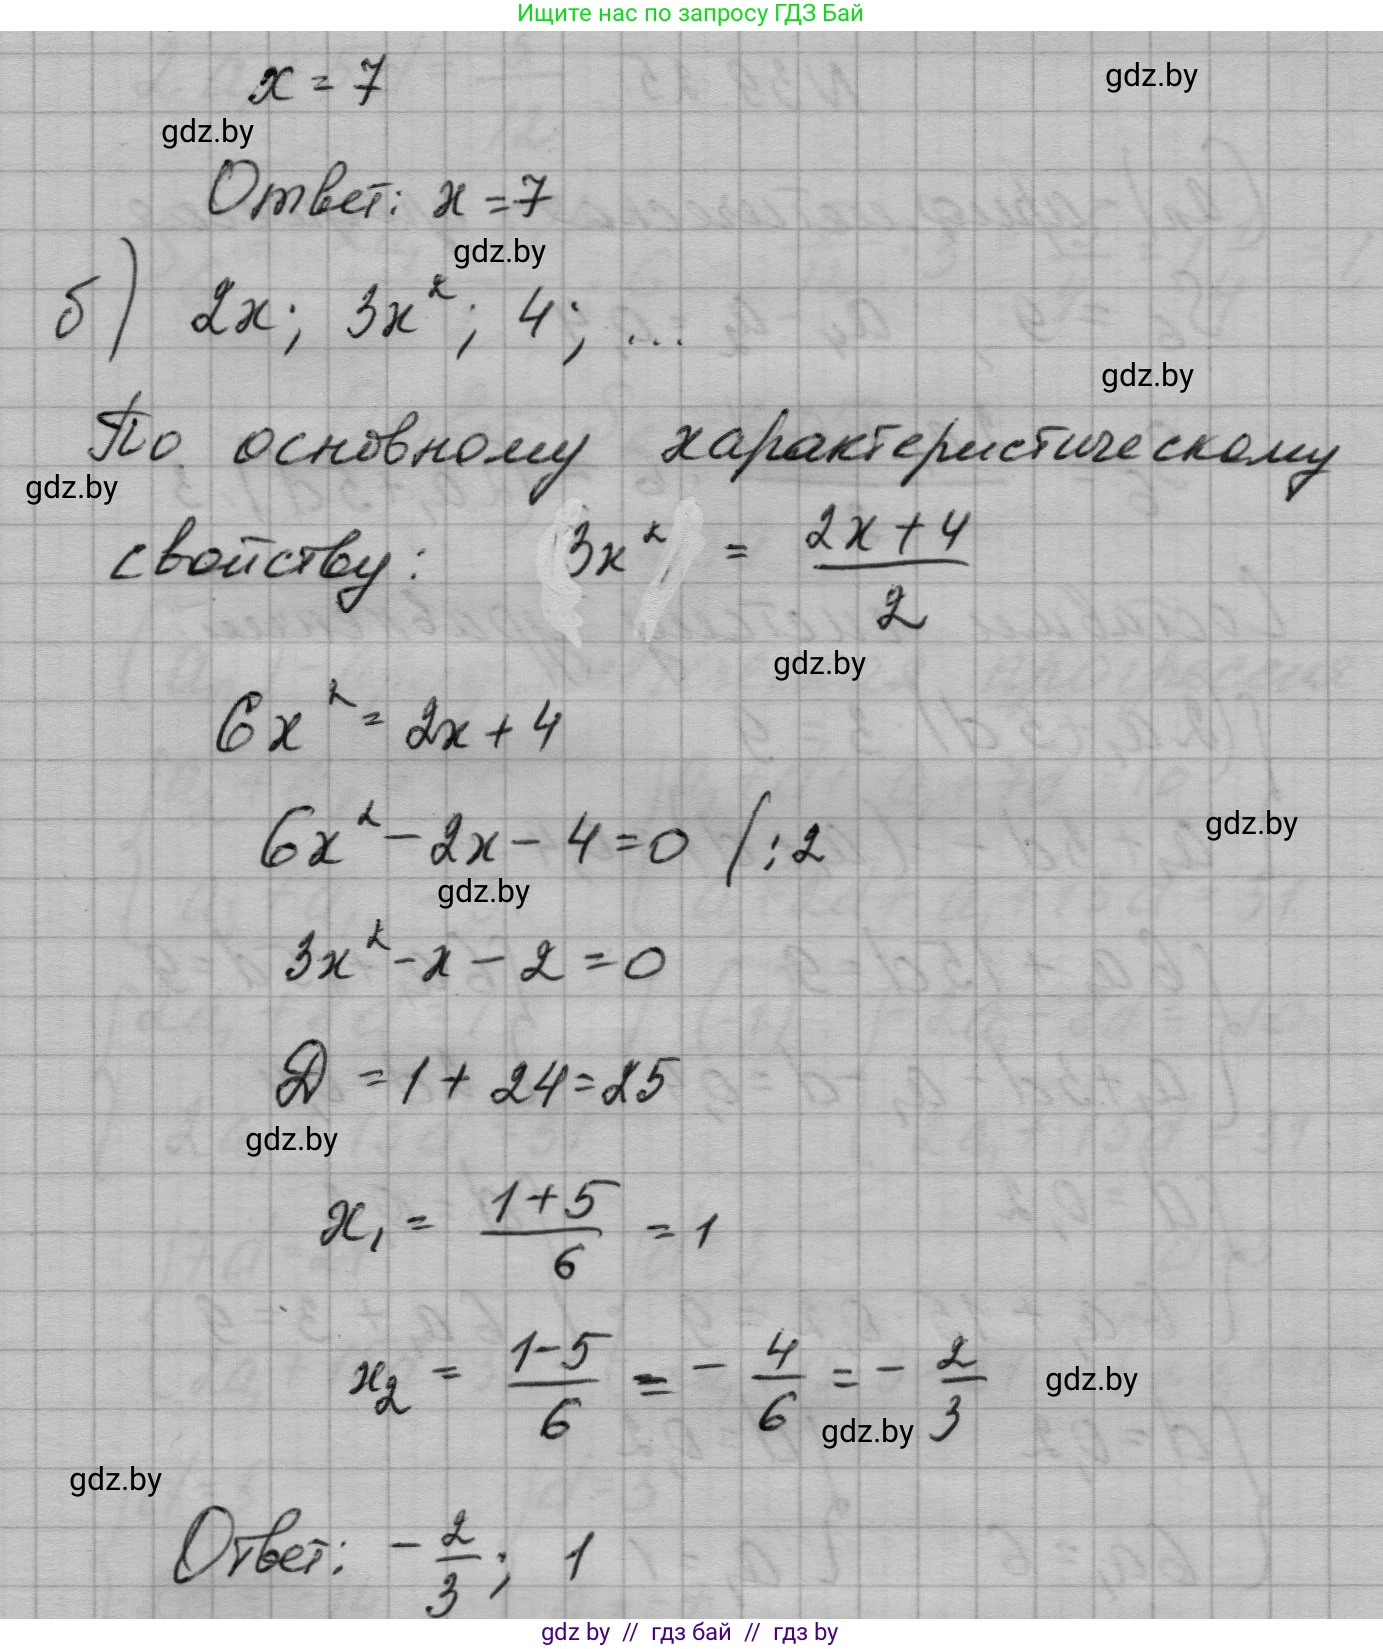 Ищите нас по запросу ГДЗ Бай
x = 7
gdz.by
gdz.by
Ответ: x = 7
gdz.by
б) 2x; 3x²; 4; ...
gdz.by
По основному характеристическому
gdz.by
свойству: 3x² = (2x + 4)/2
gdz.by
6x² = 2x + 4
6x² - 2x - 4 = 0 / :2
gdz.by
gdz.by
3x² - x - 2 = 0
D = 1 + 24 = 25
gdz.by
x₁ = (1+5)/6 = 1
x₂ = (1-5)/6 = - 4/6 = - 2/3
gdz.by
gdz.by
gdz.by
Ответ: - 2/3; 1
gdz by // гдз бай // гдз by